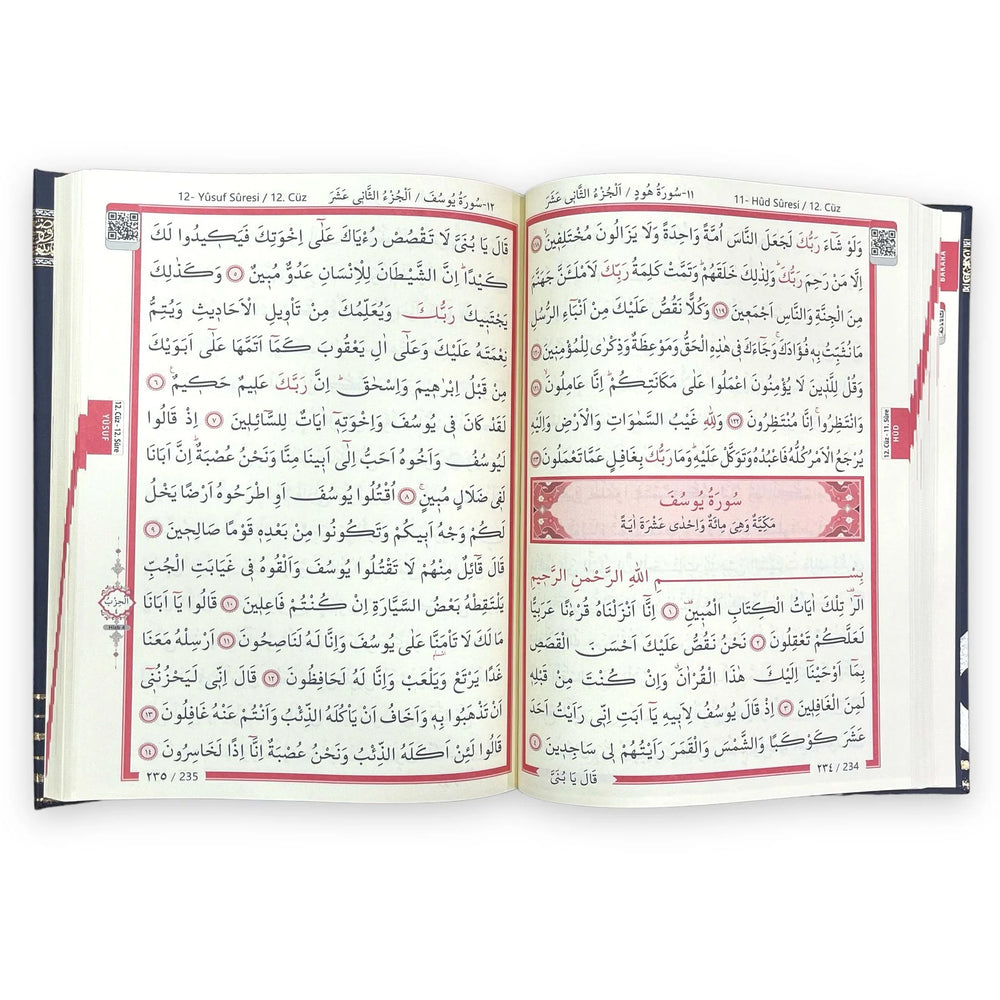 11- Hûd Sûresi / 12. Cüz
١١-سُورَةُ هُودٍ / اَلْجُزْءُ الثَّانِى عَشَرَ
وَلَوْ شَٓاءَ رَبُّكَ لَجَعَلَ النَّاسَ اُمَّةً وَاحِدَةً وَلَا يَزَالُونَ مُخْتَلِف۪ينَۙ ﴿١١٨﴾
اِلَّا مَنْ رَحِمَ رَبُّكَۜ وَلِذٰلِكَ خَلَقَهُمْۜ وَتَمَّتْ كَلِمَةُ رَبِّكَ لَاَمْلَـَٔنَّ جَهَنَّمَ
مِنَ الْجِنَّةِ وَالنَّاسِ اَجْمَع۪ينَ ﴿١١٩﴾ وَكُلًّا نَقُصُّ عَلَيْكَ مِنْ اَنْبَٓاءِ الرُّسُلِ
مَا نُثَبِّتُ بِه۪ فُؤٰادَكَۚ وَجَٓاءَكَ ف۪ي هٰذِهِ الْحَقُّ وَمَوْعِظَةٌ وَذِكْرٰى لِلْمُؤْمِن۪ينَ ﴿١٢٠﴾
وَقُلْ لِلَّذ۪ينَ لَا يُؤْمِنُونَ اعْمَلُوا عَلٰى مَكَانَتِكُمْۜ اِنَّا عَامِلُونَۙ ﴿١٢١﴾
وَانْتَظِرُواۚ اِنَّا مُنْتَظِرُونَ ﴿١٢٢﴾ وَلِلّٰهِ غَيْبُ السَّمٰوَاتِ وَالْاَرْضِ وَاِلَيْهِ
يُرْجَعُ الْاَمْرُ كُلُّهُ فَاعْبُدْهُ وَتَوَكَّلْ عَلَيْهِۜ وَمَا رَبُّكَ بِغَافِلٍ عَمَّا تَعْمَلُونَ ﴿١٢٣﴾
سُورَةُ يُوسُفَ
مَكِّيَّةٌ وَهِىَ مِائَةٌ وَاِحْدٰى عَشْرَةَ اٰيَةً
بِسْــــــــمِ اللّٰهِ الرَّحْمٰنِ الرَّح۪يمِ
الٓرٰ۠ تِلْكَ اٰيَاتُ الْكِتَابِ الْمُب۪ينِ۠ ﴿١﴾ اِنَّٓا اَنْزَلْنَاهُ قُرْءٰنًا عَرَبِيًّا
لَعَلَّكُمْ تَعْقِلُونَ ﴿٢﴾ نَحْنُ نَقُصُّ عَلَيْكَ اَحْسَنَ الْقَصَصِ
بِمَٓا اَوْحَيْنَٓا اِلَيْكَ هٰذَا الْقُرْاٰنَۗ وَاِنْ كُنْتَ مِنْ قَبْلِه۪
لَمِنَ الْغَافِل۪ينَ ﴿٣﴾ اِذْ قَالَ يُوسُفُ لِاَب۪يهِ يَٓا اَبَتِ اِنّ۪ي رَاَيْتُ اَحَدَ
عَشَرَ كَوْكَبًا وَالشَّمْسَ وَالْقَمَرَ رَاَيْتُهُمْ ل۪ي سَاجِد۪ينَ ﴿٤﴾
٢٣٤ / 234
قَالَ يَا بُنَيَّ
BAKARA
12.Cüz - 11. Sûre
HÛD
12- Yûsuf Sûresi / 12. Cüz
١٢-سُورَةُ يُوسُفَ / اَلْجُزْءُ الثَّانِى عَشَرَ
قَالَ يَا بُنَيَّ لَا تَقْصُصْ رُءْيَاكَ عَلٰٓى اِخْوَتِكَ فَيَك۪يدُوا لَكَ
كَيْدًاۜ اِنَّ الشَّيْطَانَ لِلْاِنْسَانِ عَدُوٌّ مُب۪ينٌ ﴿٥﴾ وَكَذٰلِكَ
يَجْتَب۪يكَ رَبُّكَ وَيُعَلِّمُكَ مِنْ تَأْو۪يلِ الْاَحَاد۪يثِ وَيُتِمُّ
نِعْمَتَهُ عَلَيْكَ وَعَلٰٓى اٰلِ يَعْقُوبَ كَمَٓا اَتَمَّهَا عَلٰٓى اَبَوَيْكَ
مِنْ قَبْلُ اِبْرٰه۪يمَ وَاِسْحٰقَۜ اِنَّ رَبَّكَ عَل۪يمٌ حَك۪يمٌ۟ ﴿٦﴾
لَقَدْ كَانَ ف۪ي يُوسُفَ وَاِخْوَتِه۪ٓ اٰيَاتٌ لِلسَّٓائِل۪ينَ ﴿٧﴾ اِذْ قَالُوا
لَيُوسُفُ وَاَخُوهُ اَحَبُّ اِلٰٓى اَب۪ينَا مِنَّا وَنَحْنُ عُصْبَةٌۜ اِنَّ اَبَانَا
لَف۪ي ضَلَالٍ مُب۪ينٍۚ ﴿٨﴾ اُقْتُلُوا يُوسُفَ اَوِ اطْرَحُوهُ اَرْضًا يَخْلُ
لَكُمْ وَجْهُ اَب۪يكُمْ وَتَكُونُوا مِنْ بَعْدِه۪ قَوْمًا صَالِح۪ينَ ﴿٩﴾
قَالَ قَٓائِلٌ مِنْهُمْ لَا تَقْتُلُوا يُوسُفَ وَاَلْقُوهُ ف۪ي غَيَابَتِ الْجُبِّ
يَلْتَقِطْهُ بَعْضُ السَّيَّارَةِ اِنْ كُنْتُمْ فَاعِل۪ينَ ﴿١٠﴾ قَالُوا يَٓا اَبَانَا
مَا لَكَ لَا تَأْمَنَّ۬ا عَلٰى يُوسُفَ وَاِنَّا لَهُ لَنَاصِحُونَ ﴿١١﴾ اَرْسِلْهُ مَعَنَا
غَدًا يَرْتَعْ وَيَلْعَبْ وَاِنَّا لَهُ لَحَافِظُونَ ﴿١٢﴾ قَالَ اِنّ۪ي لَيَحْزُنُن۪ٓي
اَنْ تَذْهَبُوا بِه۪ وَاَخَافُ اَنْ يَأْكُلَهُ الذِّئْبُ وَاَنْتُمْ عَنْهُ غَافِلُونَ ﴿١٣﴾
قَالُوا لَئِنْ اَكَلَهُ الذِّئْبُ وَنَحْنُ عُصْبَةٌ اِنَّٓا اِذًا لَخَاسِرُونَ ﴿١٤﴾
٢٣٥ / 235
12.Cüz - 12. Sûre
YÛSUF
اَلْحِزْبُ
٤
Hizb 4